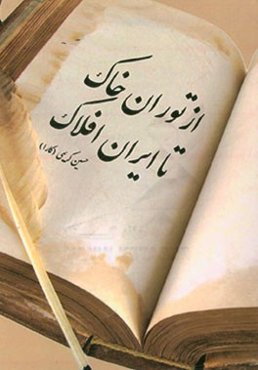 از توران خاک
تا ایران افلاک
حسین کریمی (کارا)